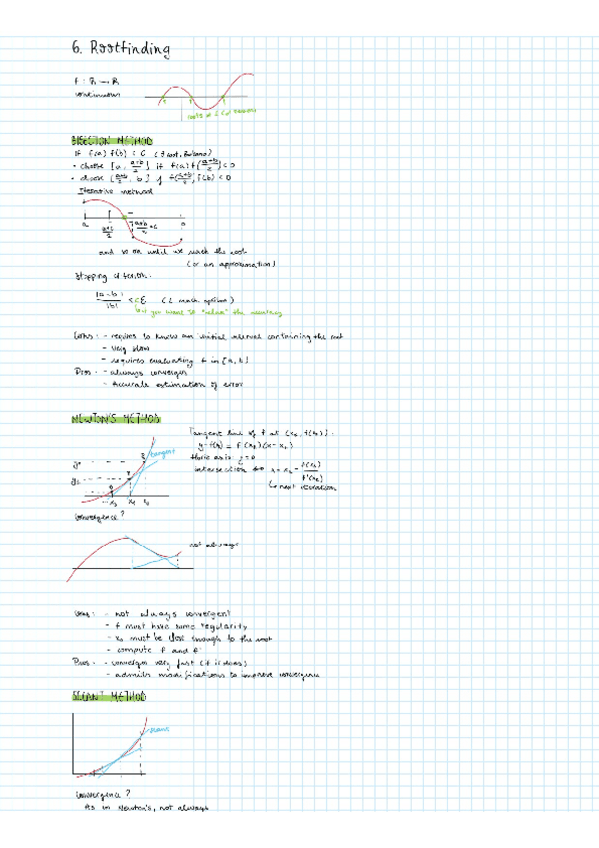 6. Rootfinding
f: R → R
continuous
roots of
BISECTION METHOD
If f(a) f(b) < 0 (∃ root, Bolzano)
• choose [a, a+b/2] if f(a) f(a+b/2) < 0
• choose [a+b/2, b] if f(a+b/2) f(b) < 0
Iterative method
a
b
and so on until we reach the root
(or an approximation)
Stopping criterion:
|a-b|/|b| < ε
you want to "relax" the accuracy
Cons: - requires to know an initial interval containing the root
- Very slow
- requires evaluating f in [a, b]
Pros: - always converges
- Accurate estimation of error
NEWTON'S METHOD
Tangent line of f at (xₖ, f(xₖ)):
y-f(xₖ) = f'(xₖ)(x-xₖ)
y=0
intersection x = xₖ - f(xₖ)/f'(xₖ)
next iteration
tangent
Convergence?
not always
Cons: - not always convergent
- f must have some regularity
- x₀ must be close enough to the root
- compute f and f'
Pros: - converges very fast (if it does)
- admits modifications to improve convergence
SECANT METHOD
secant
Convergence?
As in Newton's, not always